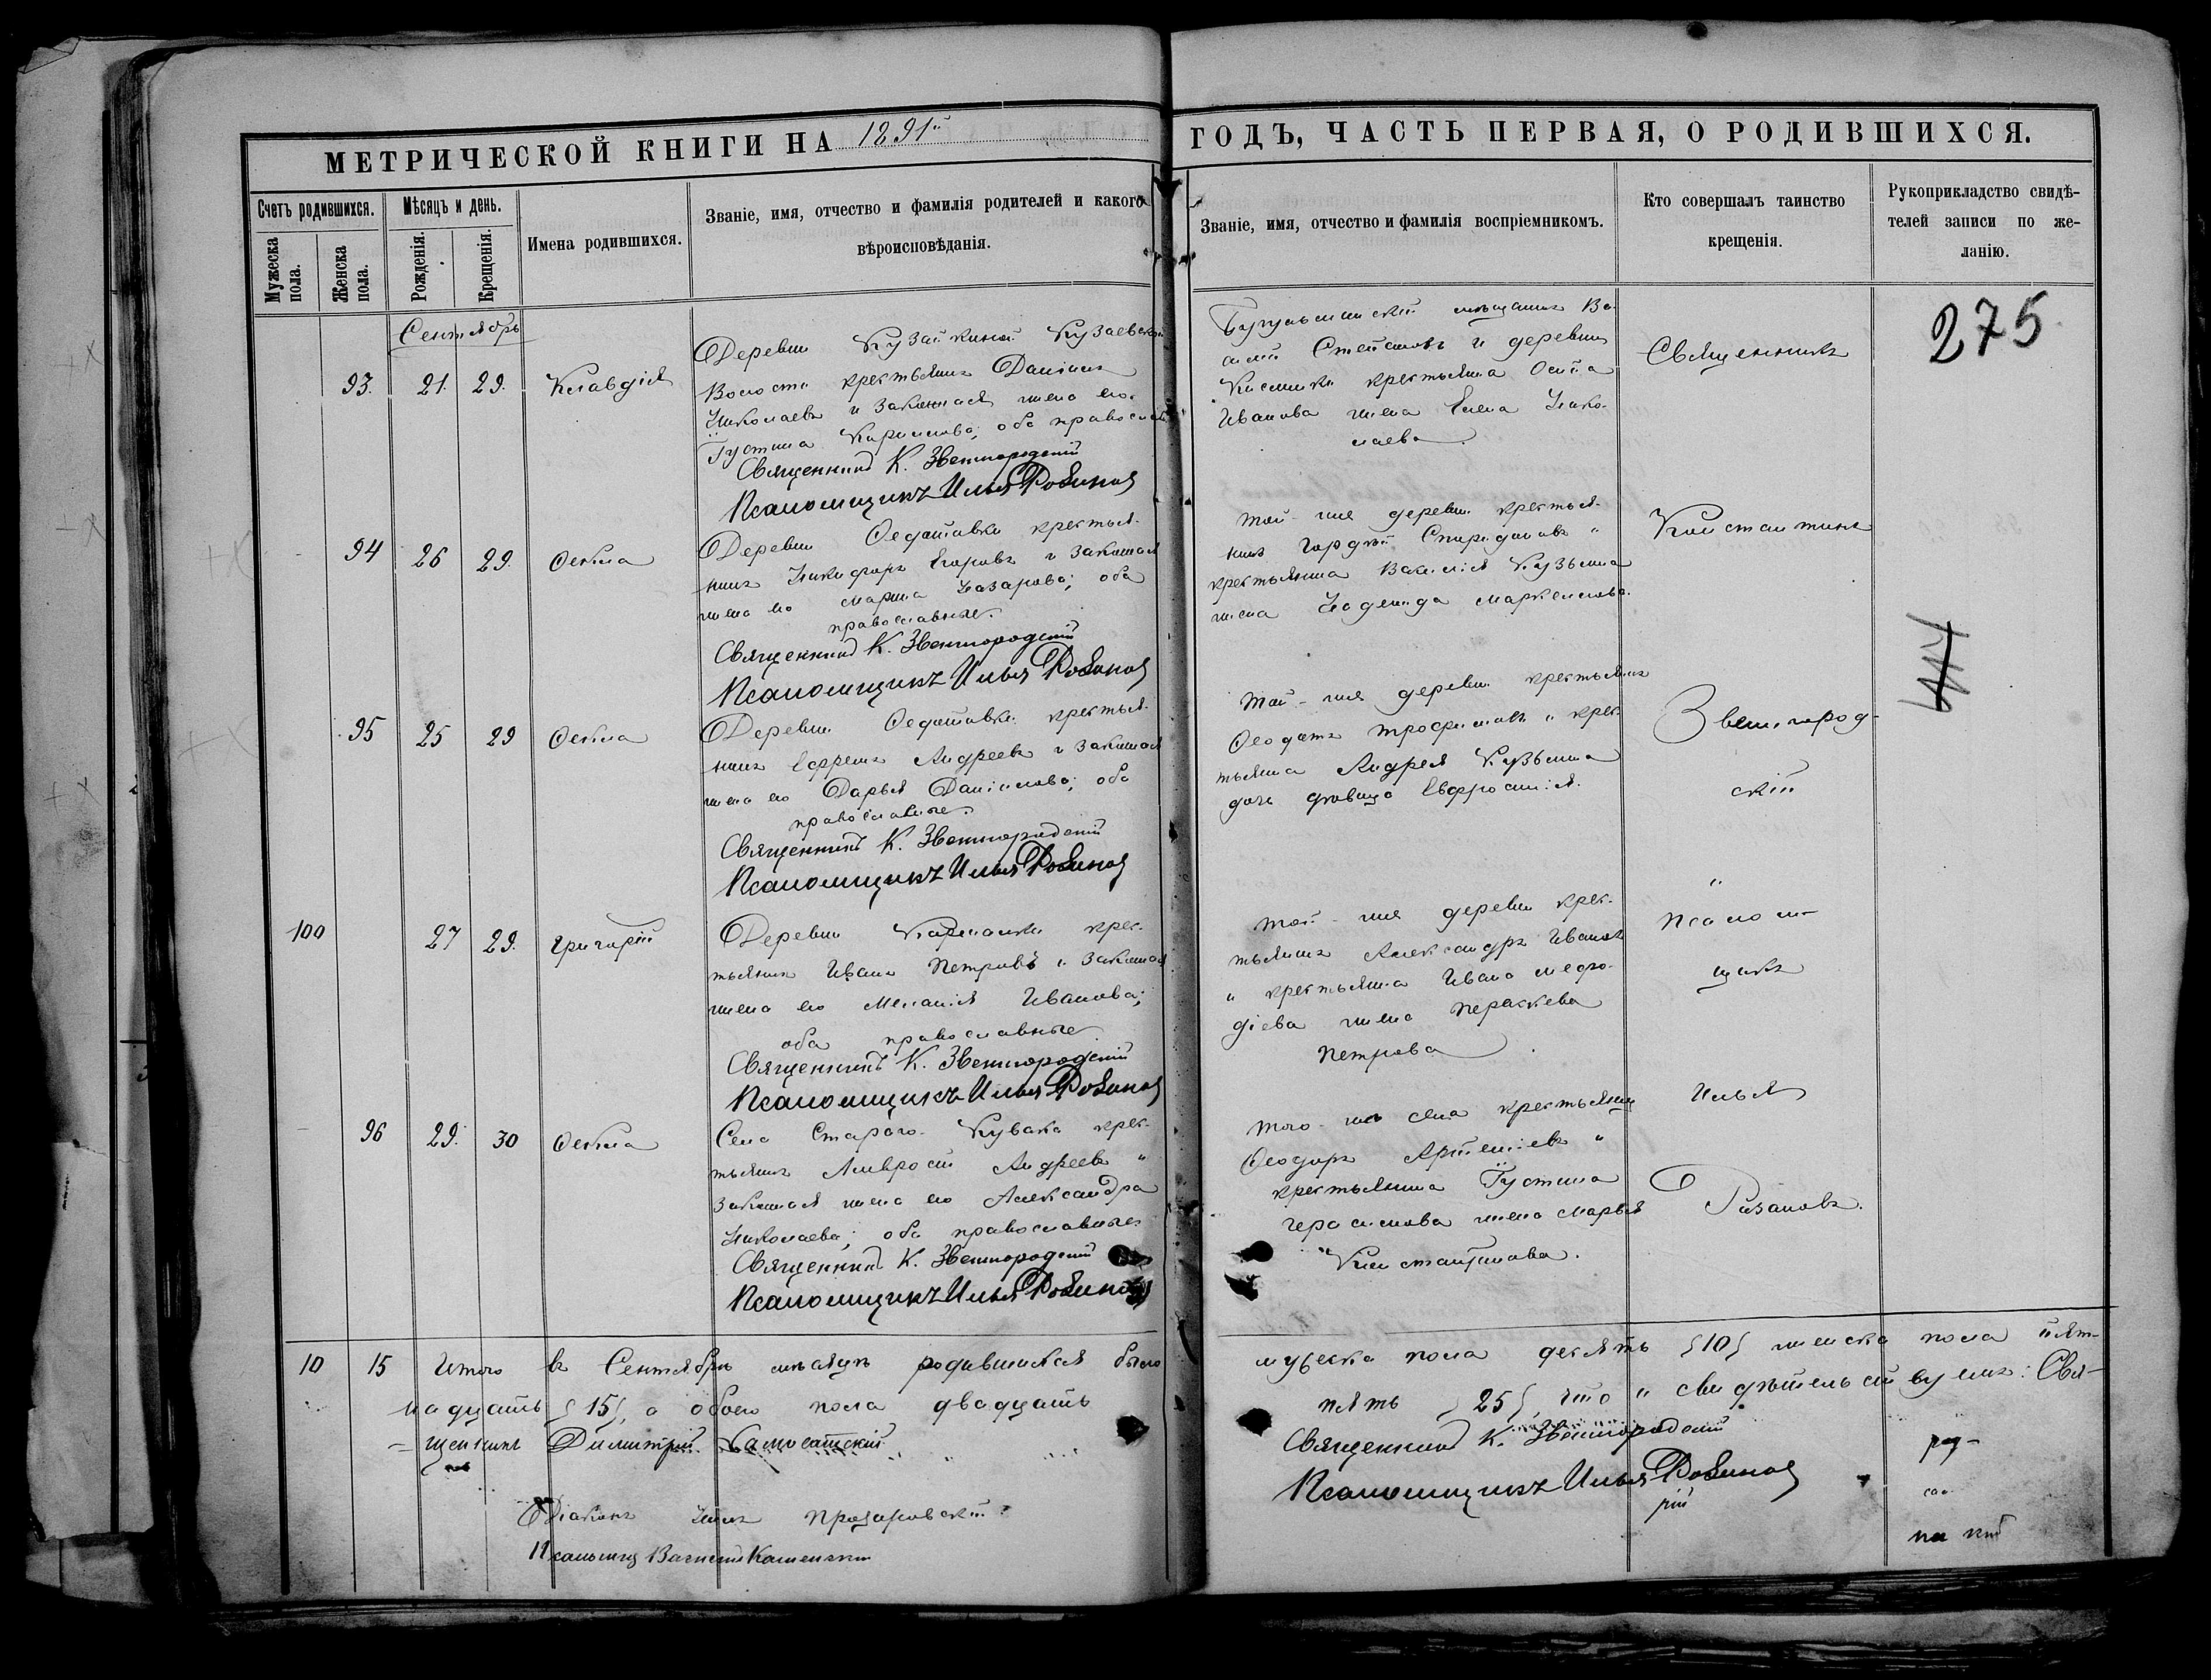 МЕТРИЧЕСКОЙ КНИГИ НА 1891й ГОДЪ, ЧАСТЬ ПЕРВАЯ, О РОДИВШИХСЯ.
Счетъ родившихся.
Мужеска пола.
Женска пола.
Мѣсяцъ и день.
Рожденія.
Крещенія.
Имена родившихся.
Званіе, имя, отчество и фамилія родителей и какого
вѣроисповѣданія.
Званіе, имя, отчество и фамилія воспріемникомъ.
Кто совершалъ таинство
крещенія.
Рукоприкладство свидѣ-
телей записи по же-
ланію.
275
Сентябрь
93. 21. 29. Клавдія
Деревни Кузайкиной Кузаевской
волости крестьянинъ Даніилъ
Николаевъ и законная жена его
Іустина Кириллова; оба православ
Священникъ К. Звенигородскій
Псаломщикъ Илья
Бугульминскій мѣщанинъ Ва-
силій Степановъ и деревни
крестьянина Осипа
Иванова жена Елена Нико-
лаева.
Священникъ
94 26 29. Ѳекла
Деревни Ѳедотовки крестья-
нинъ Никифоръ Егоровъ и законная
жена его Марина Назарова; оба
православные.
Священникъ К. Звенигородскій
Псаломщикъ Илья
той-же деревни крестья-
нинъ Гордѣй Спиридоновъ и
крестьянина Василія Кузьмина
жена Надежда Маркелова.
Константинъ
95 25 29 Ѳекла
Деревни Ѳедотовки крестья-
нинъ Ефремъ Андреевъ и законная
жена его Дарья Даніилова; оба
православные.
Священникъ К. Звенигородскій
Псаломщикъ Илья
той-же деревни крестьянинъ
Ѳеодотъ Трофимовъ и крес-
тьянина Андрея Кузьмина
дочь дѣвица Евфросинія.
Звенигород-
скій
100 27 29. Григорій
Деревни крес-
тьянинъ Иванъ Петровъ и законная
жена его Меланія Иванова;
оба православные
Священникъ К. Звенигородскій
Псаломщикъ Илья
той-же деревни крес-
тьянинъ Александръ Ивановъ
и крестьянина Ивана Меѳо-
діева жена Параскева
Петрова
и
Псалом-
щикъ
96 29. 30 Ѳекла
Села Стараго Кувака крес-
тьянинъ Амвросій Андреевъ и
законная жена его Александра
Николаева; оба православные
Священникъ К. Звенигородскій
Псаломщикъ Илья
того-же села крестьянинъ
Ѳеодоръ Артеміевъ и
крестьянина Іустина
Герасимова жена Марья
Константинова.
Илья
10 15 Итого въ Сентябрѣ мѣсяцѣ родившихся было мужеска пола десять {10} женска пола пят-
надцать {15}, а обоего пола двадцать пять {25}, что и свидѣтельствуемъ: Свя-
щенникъ Димитрій
Священникъ К. Звенигородскій
Псаломщикъ Илья
Діаконъ